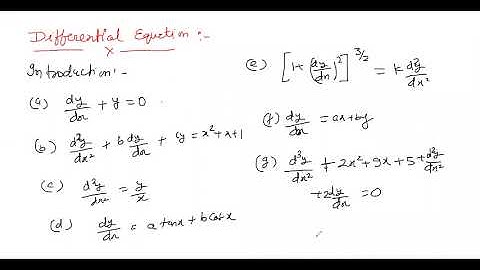 Differential Equetion :-
x
Introduction :-
(a) dy/dx + y = 0
(b) d²y/dx² + b dy/dx + cy = x² + x + 1
(c) d²y/dx² = y/x
(d) dy/dx = a tanx + b cotx
(e) [1 + (dy/dx)²]^3/2 = k d²y/dx²
(f) dy/dx = ax + by
(g) d³y/dx² + 2x² + 9x + 5 + d²y/dx²
+ 2dy/dx = 0